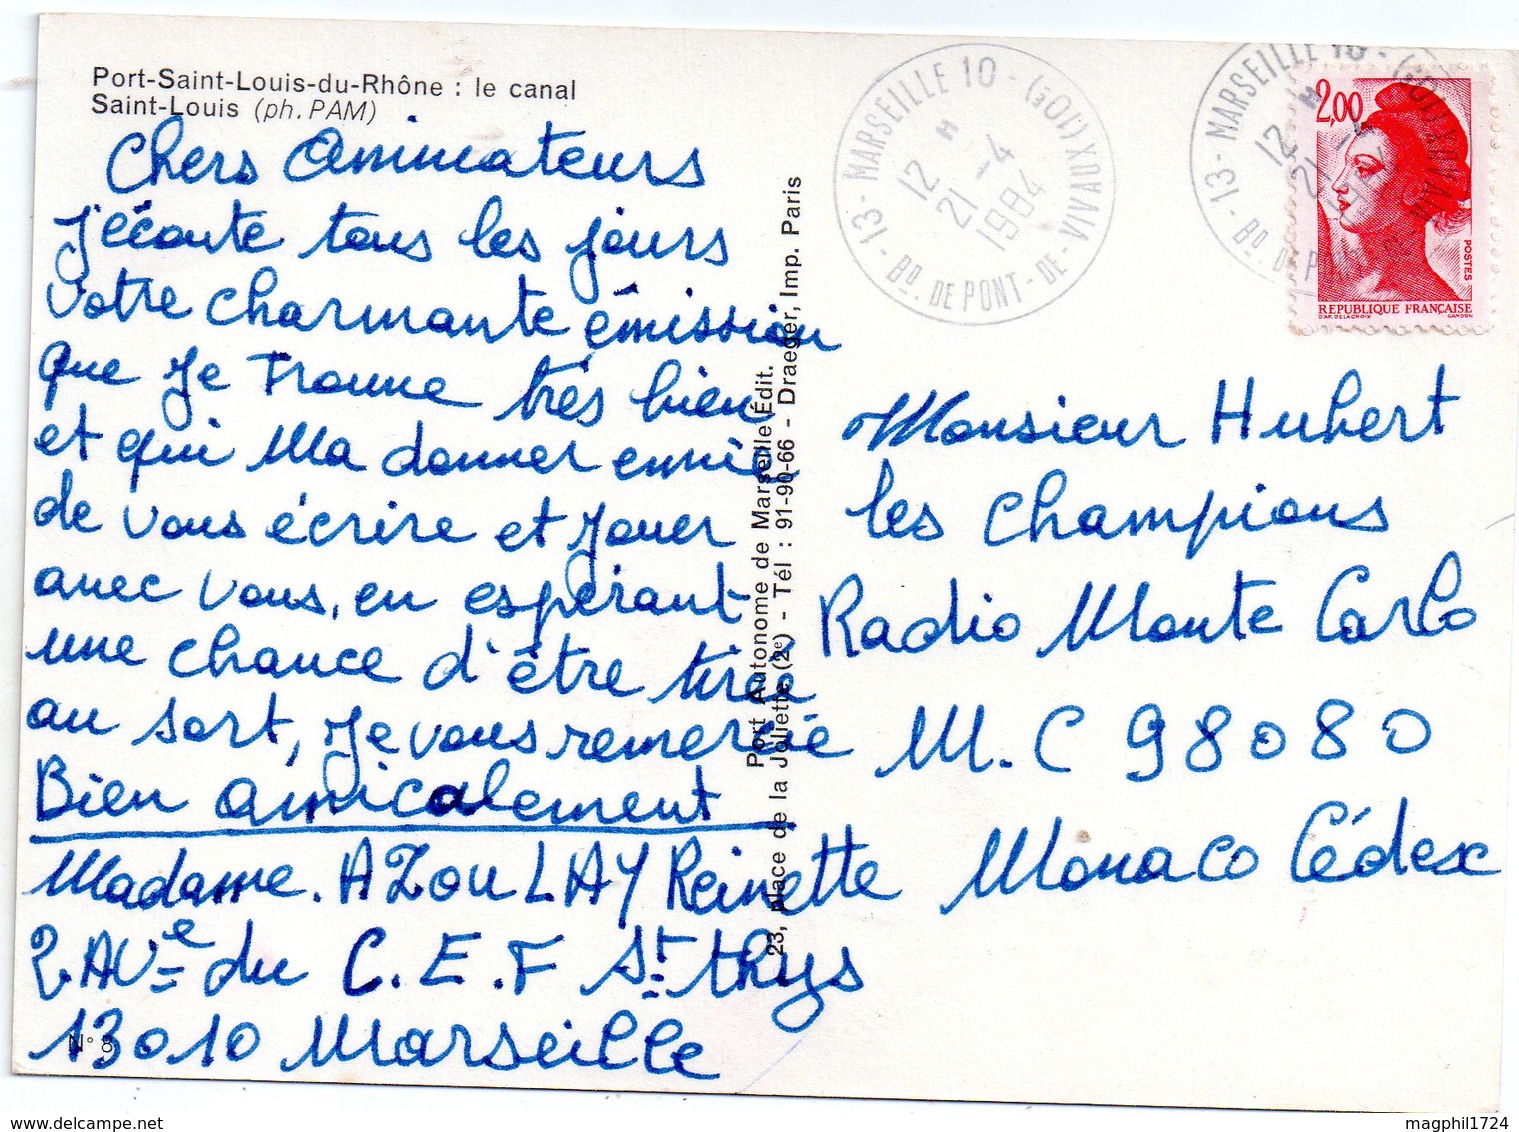 Port-Saint-Louis-du-Rhône : le canal
Saint-Louis (ph. PAM)
Chers Animateurs
J'écoute tous les jours
votre charmante émission
que Je Trouve très bien
et qui Ma donner ennvie
de vous écrire et Jouer
avec vous, en espérant
une chance d'être tirée
au sort, Je vous remercie
Bien amicalement
Madame. AZOULAY Reinette
2 AVe du C.E.F St. thys
13010 Marseille
N° 8
Port Autonome de Marseille Édit.
23, place de la Joliette (2e) - Tél : 91-90-66 - Draeger, Imp. Paris
13 - MARSEILLE 10 - (1OI) VIVAUX
12 H
21 -4
1984
Bd. DE PONT - DE -
13 - MARSEILLE 10
12 H
21
Bd. DE P
2,00
POSTES
REPUBLIQUE FRANÇAISE
D'AP. DELACROIX GANDON
Monsieur Hubert
les champions
Radio Monte Carlo
M.C 98080
Monaco Cédex
www.delcampe.net
magphil1724